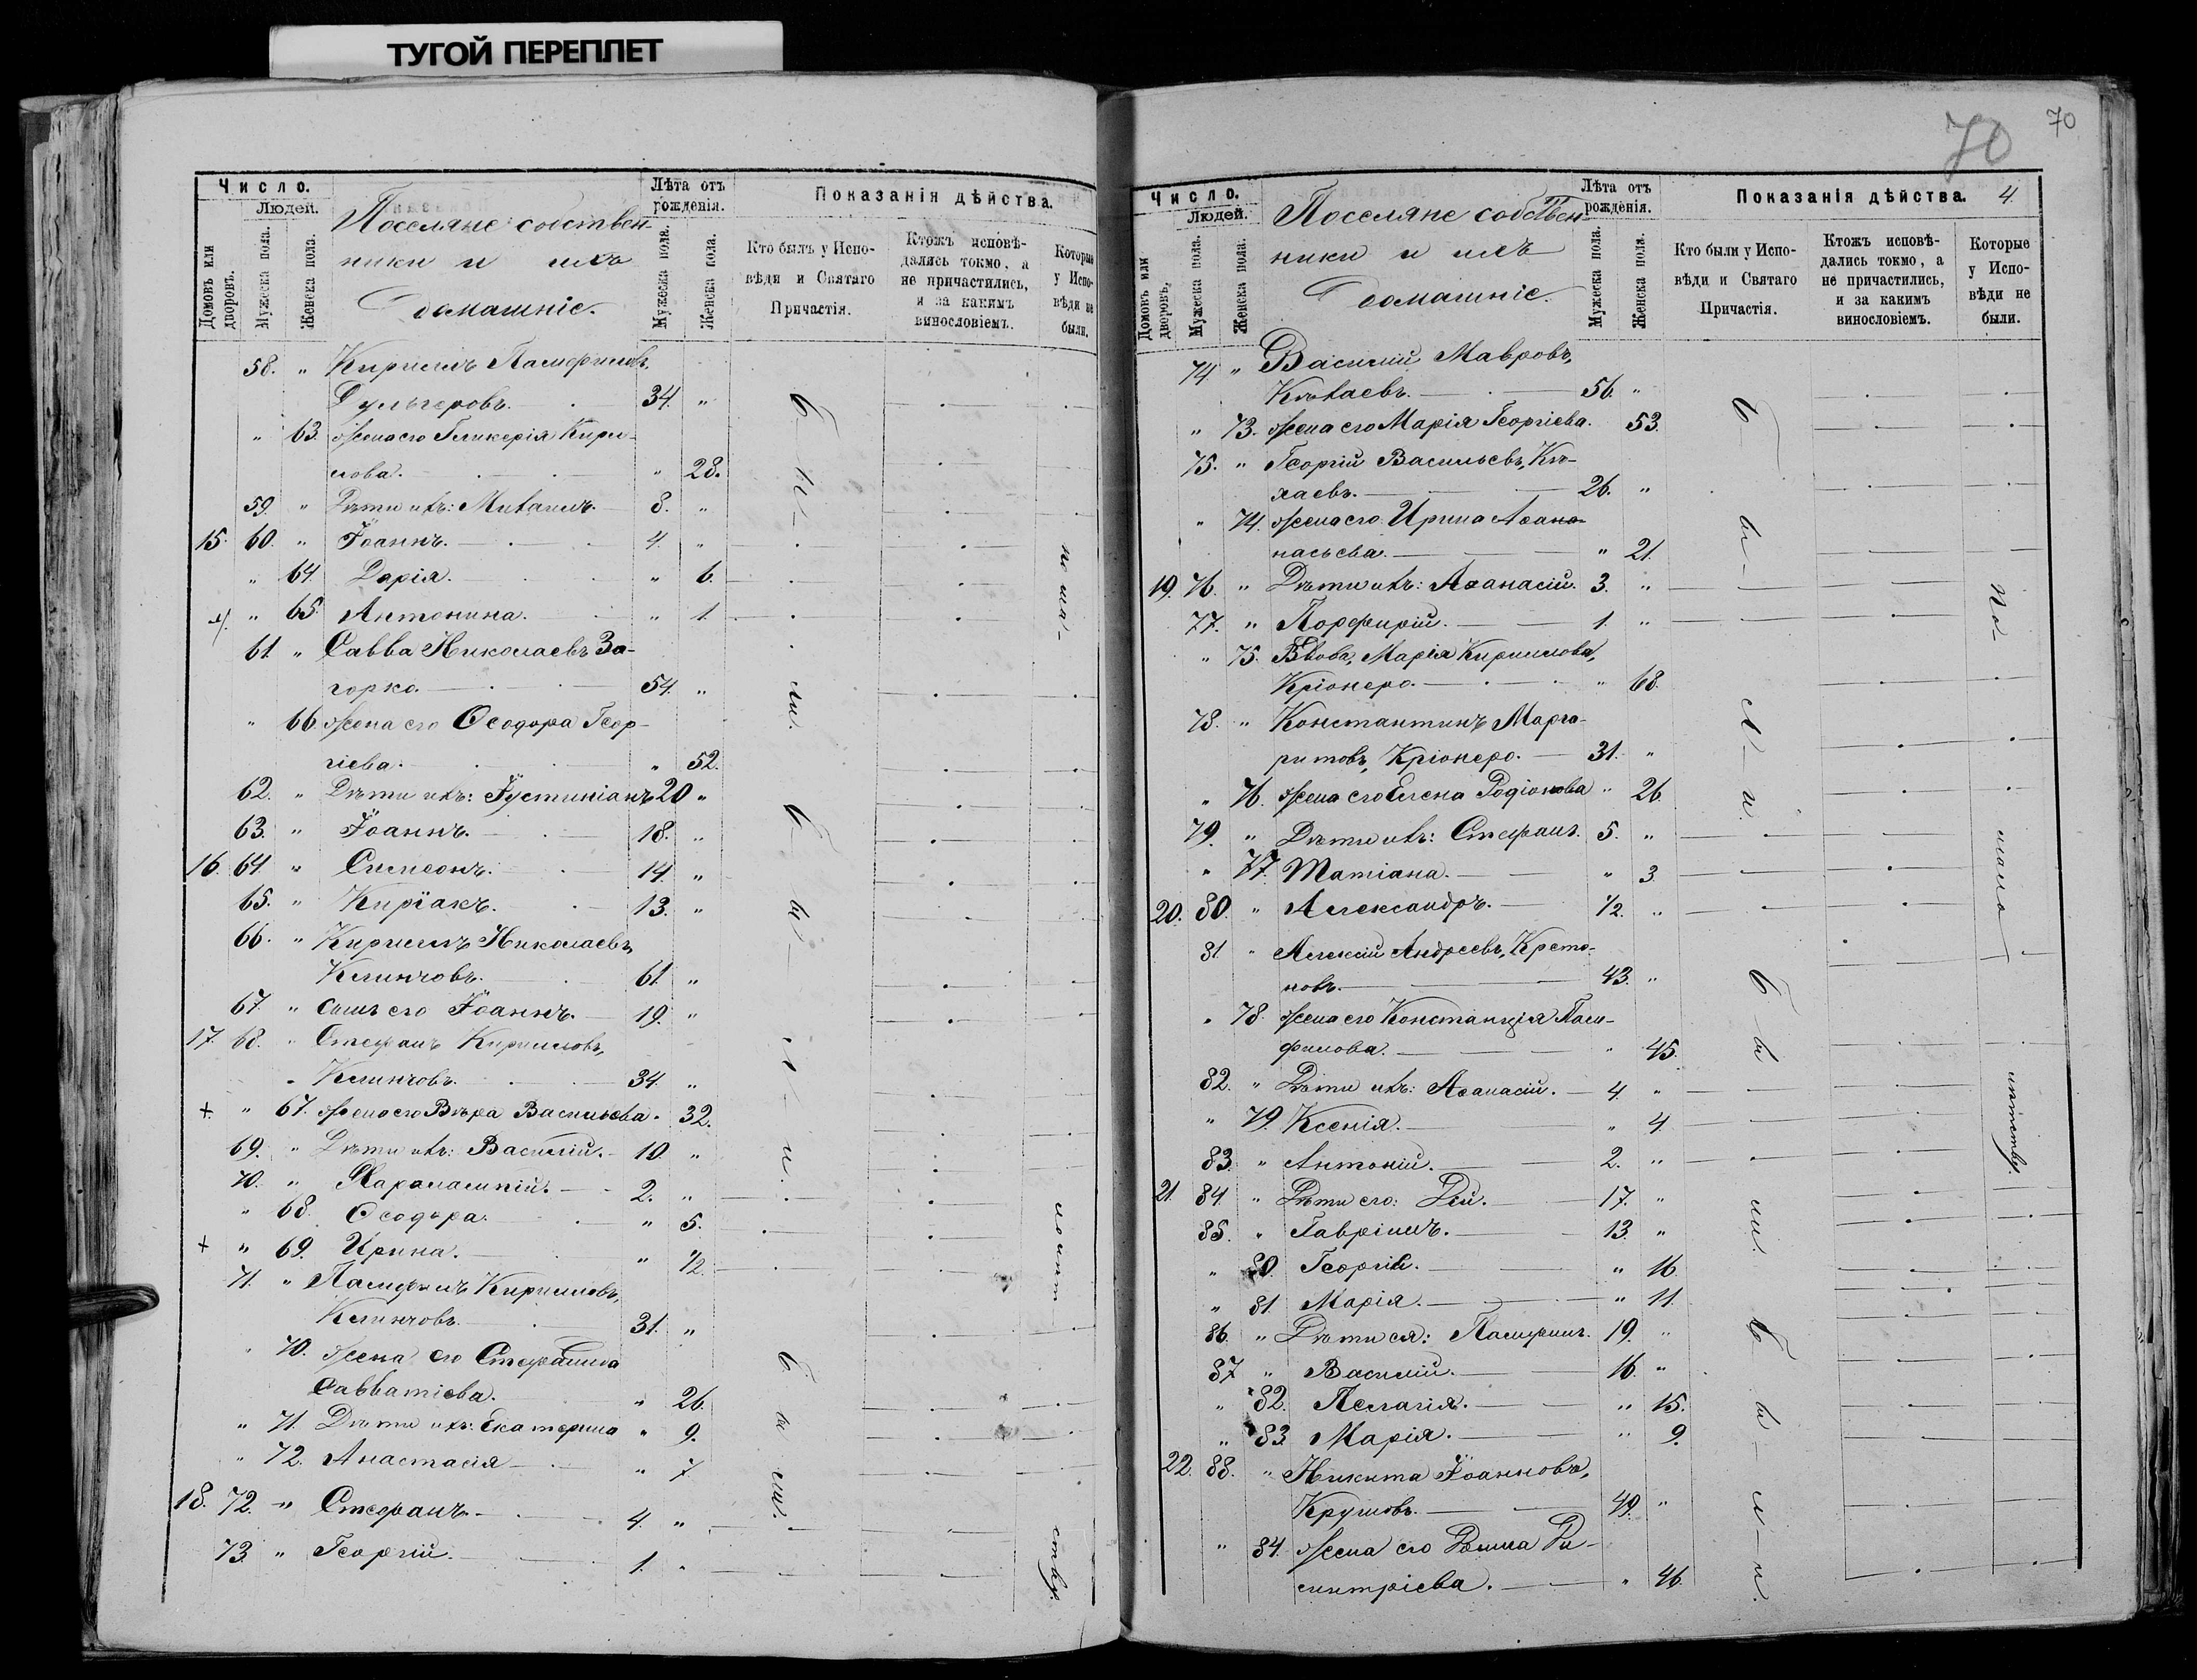 ТУГОЙ ПЕРЕПЛЕТ
Число.
Людей.
Домовъ или дворовъ.
Мужеска пола.
Женска пола.
Поселяне собствен-
ники и ихъ
домашніе.
Лѣта отъ рожденія.
Мужеска пола.
Женска пола.
Показанія дѣйства.
Кто былъ у Испо-
вѣди и Святаго
Причастія.
Ктожъ исповѣ-
дались токмо, а
не причастились,
и за какимъ
винословіемъ.
Которые
у Испо-
вѣди не
были.
58. " Кириллъ Памфиловъ,
Дульгеровъ. 34. "
" 63. Жена его Гликерія Кири-
лова. " 28.
59. " Дѣти ихъ: Михаилъ. 8. "
15. 60. " Іоаннъ. 4. "
" 64. Дарія. " 6.
" 65. Антонина. " 1.
61. " Савва Николаевъ За-
горко. 54. "
" 66. Жена его Ѳеодора Геор-
гіева. " 52.
62. " Дѣти ихъ: Іустиніанъ 20 "
63. " Іоаннъ. 18. "
16. 64. " Симеонъ. 14. "
65. " Киріакъ. 13. "
66. " Кириллъ Николаевъ,
Клинчовъ. 61. "
67. " Сынъ его Іоаннъ. 19. "
17. 68. " Стефанъ Кирилловъ,
Клинчовъ. 34. "
+ " 67. Жена его Вѣра Васильева. 32.
69. " Дѣти ихъ: Василій. 10. "
70. " Харалампій. 2. "
" 68. Ѳеодора. " 5.
+ " 69. Ирина. " 1/2.
71. " Памфилъ Кирилловъ,
Клинчовъ. 31. "
" 70. Жена его Стефанида
Савватіева. " 26.
" 71. Дѣти ихъ: Екатерина " 9.
" 72. Анастасія " 7
18. 72. " Стефанъ. 4. "
73. " Георгій. 1. "
бы-
ли.
бы-
ли.
бы
ли.
по ма-
лолѣт
ству.
70
70
4
Число.
Людей.
Домовъ или дворовъ,
Мужеска пола.
Женска пола.
Поселяне собствен-
ники и ихъ
домашніе.
Лѣта отъ рожденія.
Мужеска пола.
Женска пола.
Показанія дѣйства.
Кто были у Испо-
вѣди и Святаго
Причастія.
Ктожъ исповѣ-
дались токмо, а
не причастились,
и за какимъ
винословіемъ.
Которые
у Испо-
вѣди не
были.
74. " Василій Мавровъ,
Кѣхаевъ. 56. "
" 73. Жена его Марія Георгіева. 53.
75. " Георгій Васильевъ, Кѣ-
хаевъ. 26. "
" 74. Жена его Ирина Аѳана-
насьева. " 21.
19. 76. " Дѣти ихъ: Аѳанасій. 3. "
77. " Порфирій. 1. "
" 75. Вдова, Марія Кириллова,
Кріонеро. " 68.
78. " Константинъ Марга-
ритовъ, Кріонеро. 31. "
" 76. Жена его Елена Родіонова " 26.
79. " Дѣти ихъ: Стефанъ. 5. "
" 77. Татіана. " 3.
20. 80. " Александръ. 1/2. "
81. " Алексій Андреевъ, Крето-
новъ. 43. "
" 78. Жена его Констанція Пам-
филова. " 45.
82. " Дѣти ихъ: Аѳанасій. 4. "
" 79. Ксенія. " 4.
83. " Антоній. 2. "
21. 84. " Дѣти его: Дей. 17. "
85. " Гавріилъ. 13. "
" 80. Георгій. " 16.
" 81. Марія. " 11.
86. " Дѣти ея: Памфилъ. 19. "
87. " Василій. 16. "
" 82. Пелагія. " 15.
" 83. Марія. " 9.
22. 88. " Никита Іоанновъ,
Крушовъ. 49. "
" 84. Жена его Домна Ди-
митріева. " 46.
бы-
ли.
бы
ли.
бы-
ли.
по
мало
лѣтству.